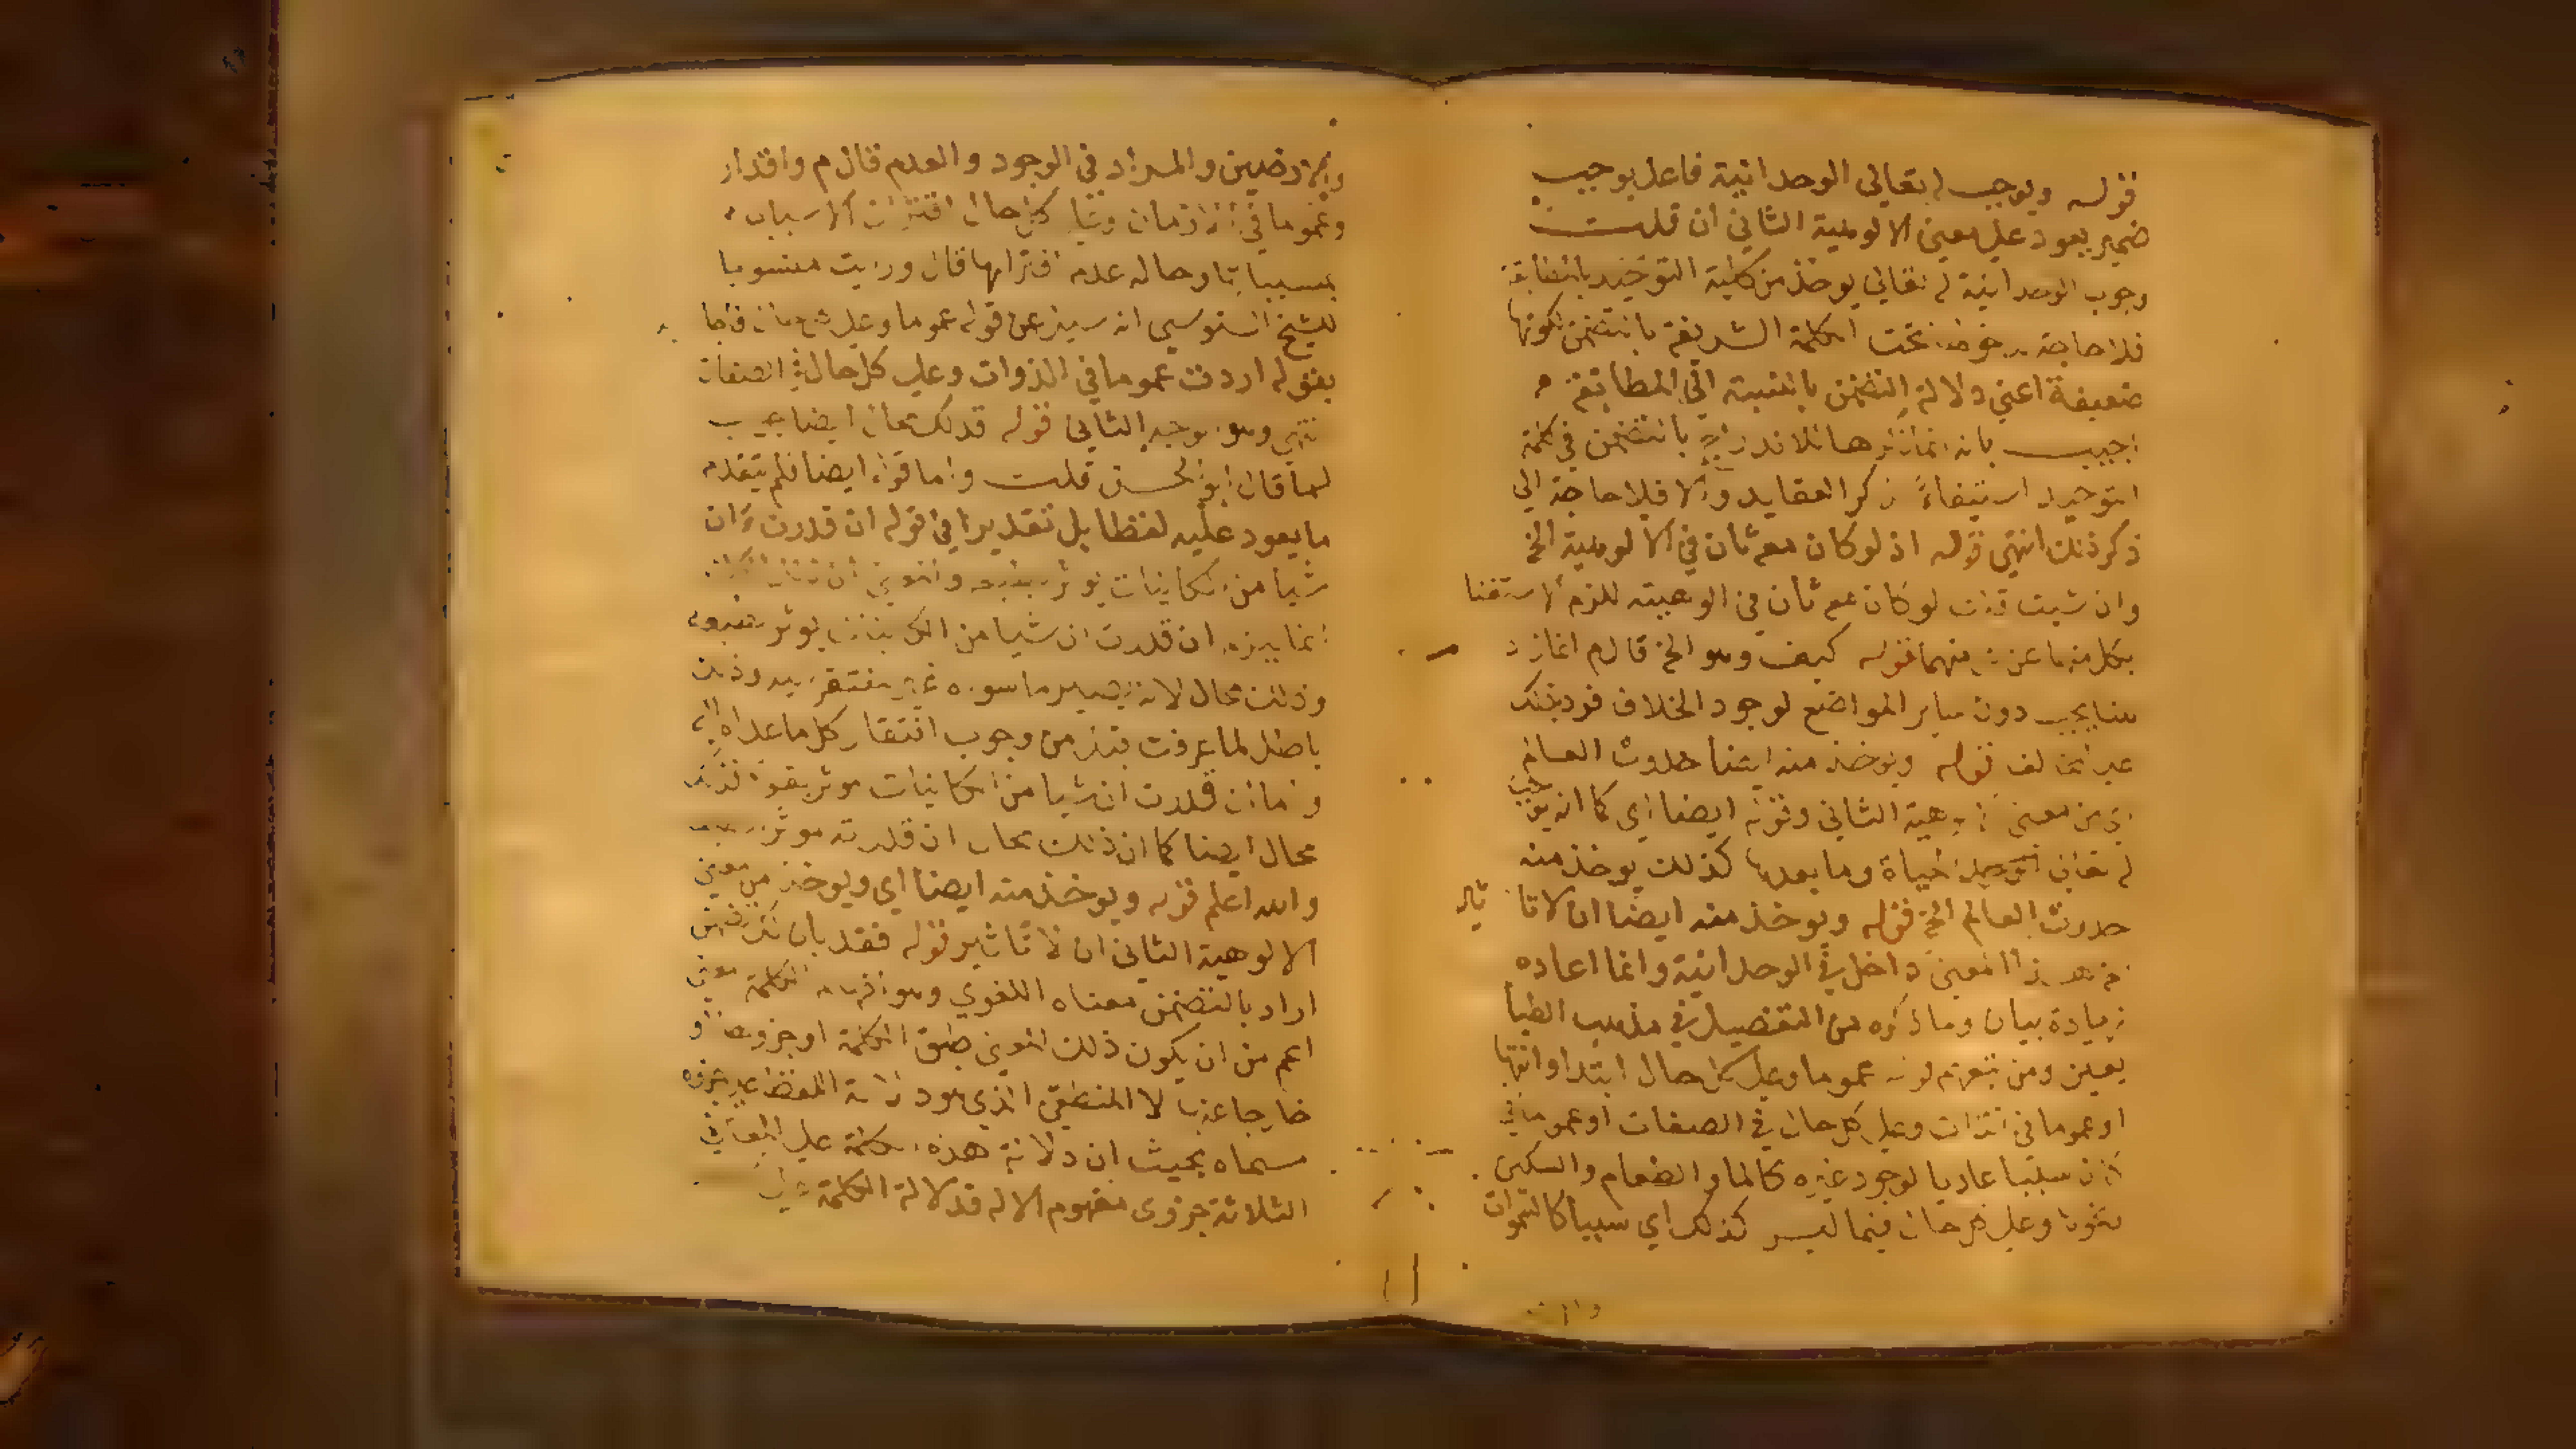 قوله ويوجب له تعالى الوحدانية فاعل يوجب
ضمير يعود على معنى الالوهية الثاني ان قلت
وجوب الوحدانية له تعالى يوخذ من كلمة التوحيد بالمطابقة
فلا حاجة تحت الكلمة الشريفة بالتضمن لكونها
ضعيفة اعني دلالة التضمن بالنسبة الي المطابقة
اجيب بانه انما بالتضمن في كلمة
التوحيد استيفاءً ذكر العقايد والا فلا حاجة الي
ذكر ذلك انتهى قوله اذ لو كان معه ثان في الالوهية الخ
وان شيت قلت لو كان معه ثان في الوهيته للزم الاستغنا
بكل منهما عن منهما قوله كيف وهو الخ قال م انما زاد
هنا يجب دون ساير المواضع لوجود الخلاف فرد بذلك
على المخالف قوله ويوخذ منه ايضا حدوث العالم
اي من معنى الوهية الثاني وقوله ايضا اي كما انه يوجب
له تعالى الحياة وما بعدها كذلك يوخذ منه
حدوث العالم الخ قوله ويوخذ منه ايضا ان لا تاثير
هذا المعنى داخل في الوحدانية وانما اعاده
زيادة بيان وما ذكره من التفصيل في مذهب الطبا
يعين ومن تبعهم قوله عموما وعلى كل حال ابتدا وانتها
او عموما في الذات وعلى كل حال في الصفات او عموما في
سببا عاديا لوجود غيره كالماء والطعام والسكين
وعلى كل حال فيما ليس كذلك اي سببا كالسموات
والارضين والمراد في الوجود والعدم قال م واقدار
وعموما في الازمان كل حال اقتران الاسباب
بمسبباتها وحالة عدم اقترانها قال ورايت منسوبا
للشيخ السنوسي انه سيل عن قوله عموما وعلى كل حال فاجاب
بقوله اردت عموما في الذوات وعلى كل حال في الصفات
انتهى وهو توجيه الثاني قوله فذلك محال ايضا
لما قال ابو الحسن قلت واما قوله ايضا فلم يتقدم
ما يعود عليه لفظا بل تقديرا في قوله ان قدرت ان
شيا من الكاينات يوثر بطبعه والمعنى ان
انما يلزم ان قدرت ان شيا من الكاينات يوثر بطبعه
وذلك محال لانه يصير ما سواه غير مفتقر اليه وذلك
باطل لما عرفت قبل من وجوب افتقار كل ما عداه اليه
واما ان قدرت ان شيا من الكاينات موثر بقوة فذلك
محال ايضا كما ان ذلك محال ان قدرته موثر
والله اعلم قوله ويوخذ منه ايضا اي ويوخذ من معنى
الالوهية الثاني ان لا تاثير قوله فقد بان لك تضمن
اراد بالتضمن معناه اللغوي وهو الكلمة معنى
اعم من ان يكون ذلك المعنى طبق الكلمة او جزوها او
خارجا عنها لا المنطقي الذي هو دلالة اللفظ على جزوء
مسماه بحيث ان دلالة هذه الكلمة على المعاني
الثلاثة جزوى مفهوم الاله فدلالة الكلمة على